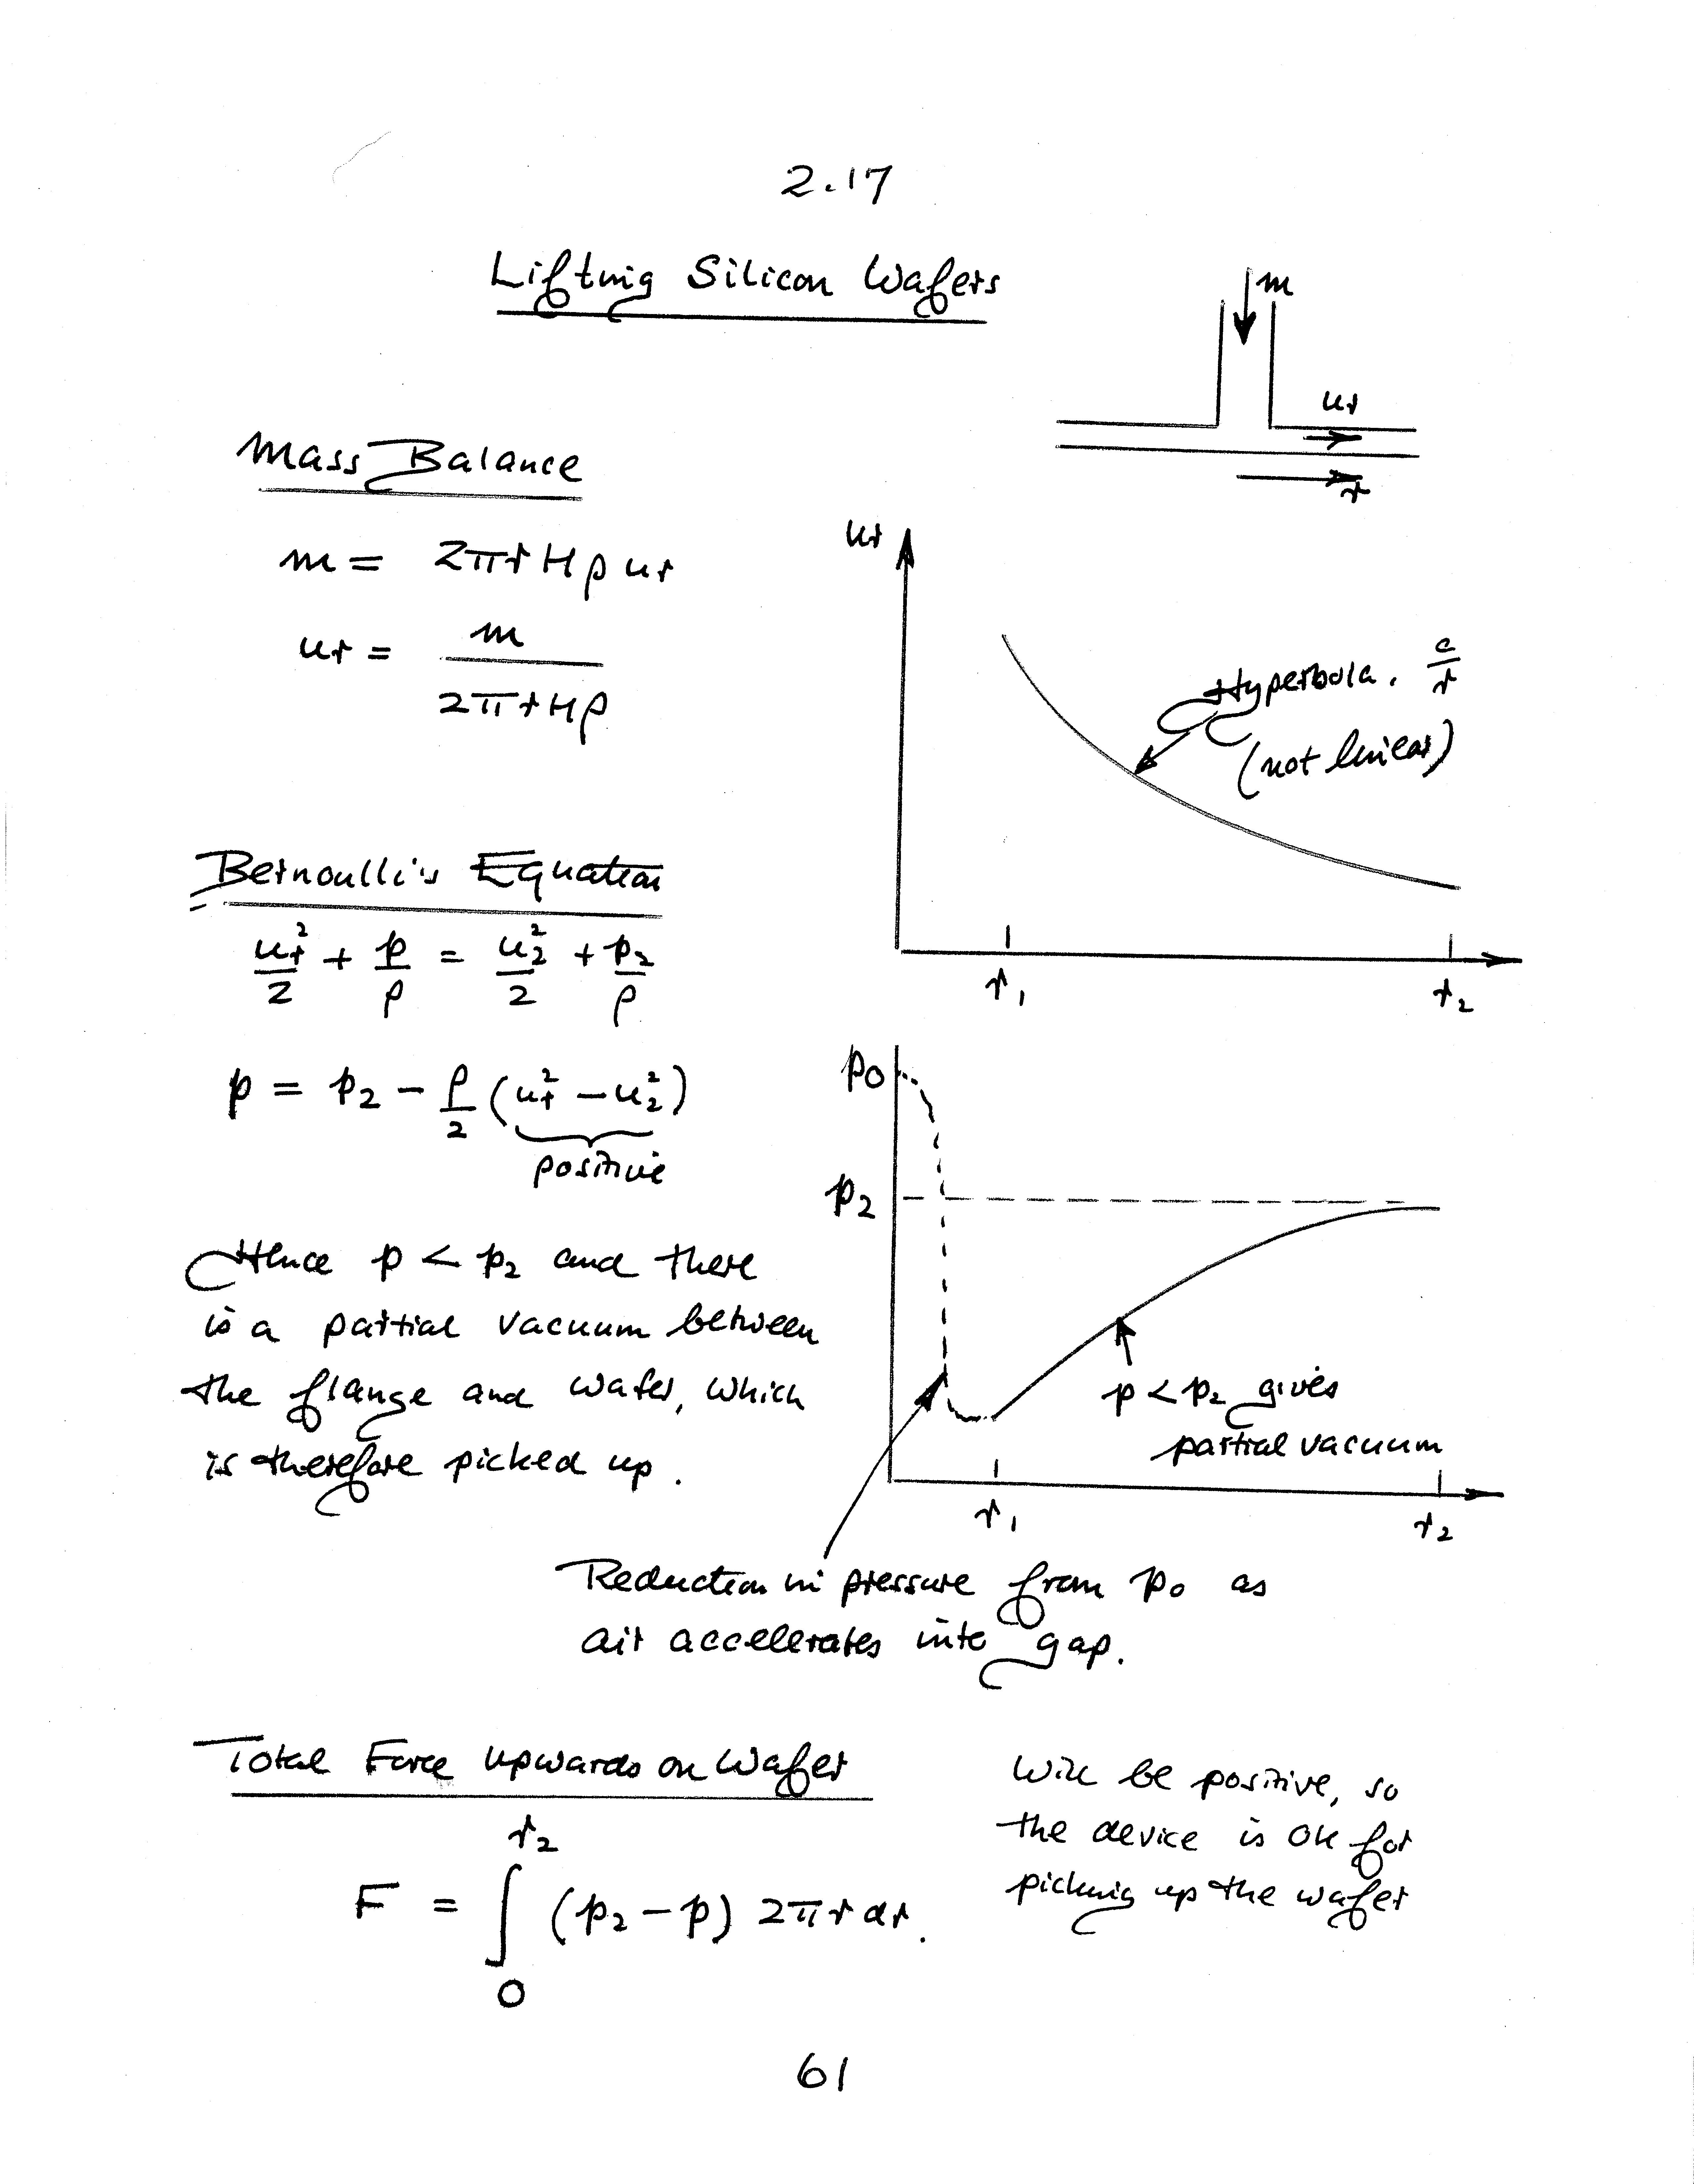 2.17
Lifting Silicon Wafers
m
ur
r
Mass Balance
m = 2πrHρur
ur = m
2πrHρ
ur
Hyperbola. c/r
(not linear)
r1
r2
Bernoulli's Equation
ur²/2 + p/ρ = u2²/2 + p2/ρ
p = p2 - ρ/2 (ur² - u2²)
positive
p0
p2
Hence p < p2 and there
is a partial vacuum between
the flange and wafer, which
is therefore picked up.
p < p2 gives
partial vacuum
r1
r2
Reduction in pressure from p0 as
air accelerates into gap.
Total Force upwards on Wafer
F = ∫ r2 0 (p2 - p) 2πr dr.
Will be positive, so
the device is OK for
picking up the wafer
61